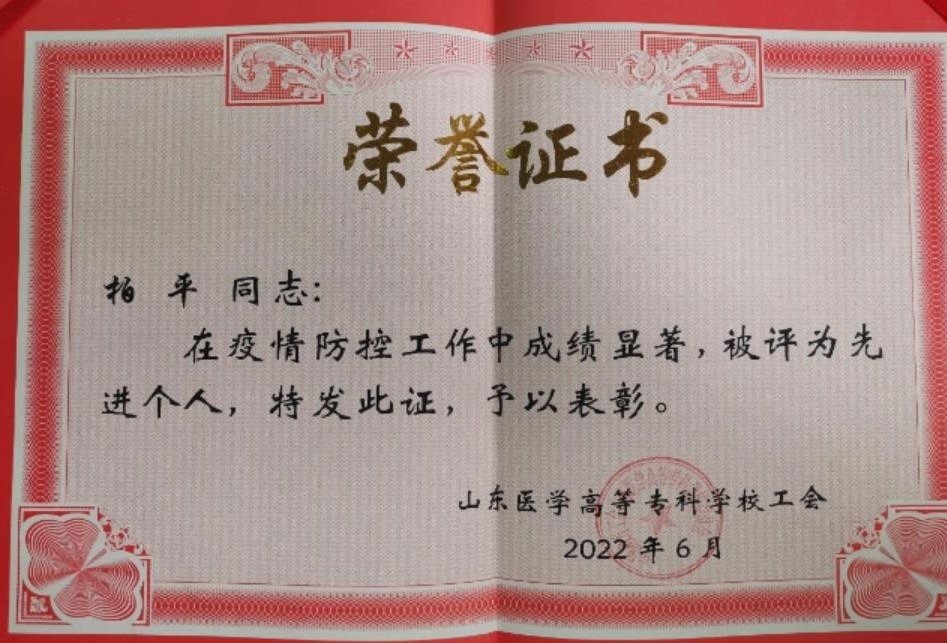 荣誉证书
柏 平 同志：
在疫情防控工作中成绩显著，被评为先
进个人，特发此证，予以表彰。
山东医学高等专科学校工会
2022 年 6 月